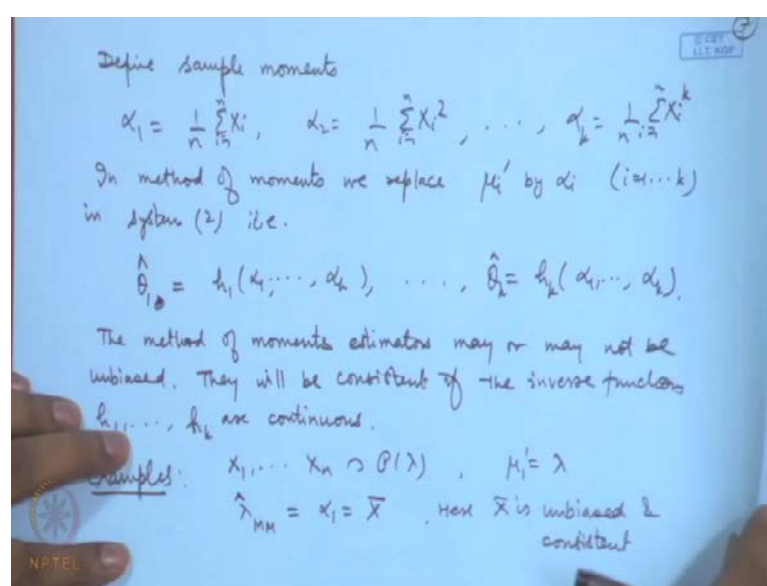 7
© CET
I.I.T. KGP
Define sample moments
α₁ = 1/n Σⁿᵢ₌₁ Xᵢ, α₂ = 1/n Σⁿᵢ₌₁ Xᵢ², . . . , αₖ = 1/n Σⁿᵢ₌₁ Xᵢᵏ
In method of moments we replace μᵢ' by αᵢ (i=1...k)
in system (2) i.e.
θ̂₁ = h₁(α₁, ..., αₖ), . . . . , θ̂ₖ = hₖ(α₁, ..., αₖ).
The method of moments estimators may or may not be
unbiased. They will be consistent if the inverse functions
h₁, ..., hₖ are continuous.
Examples: X₁, ... Xₙ ~ P(λ) , μ₁' = λ
λ̂_MM = α₁ = X̄ . Here X̄ is unbiased &
consistent
NPTEL